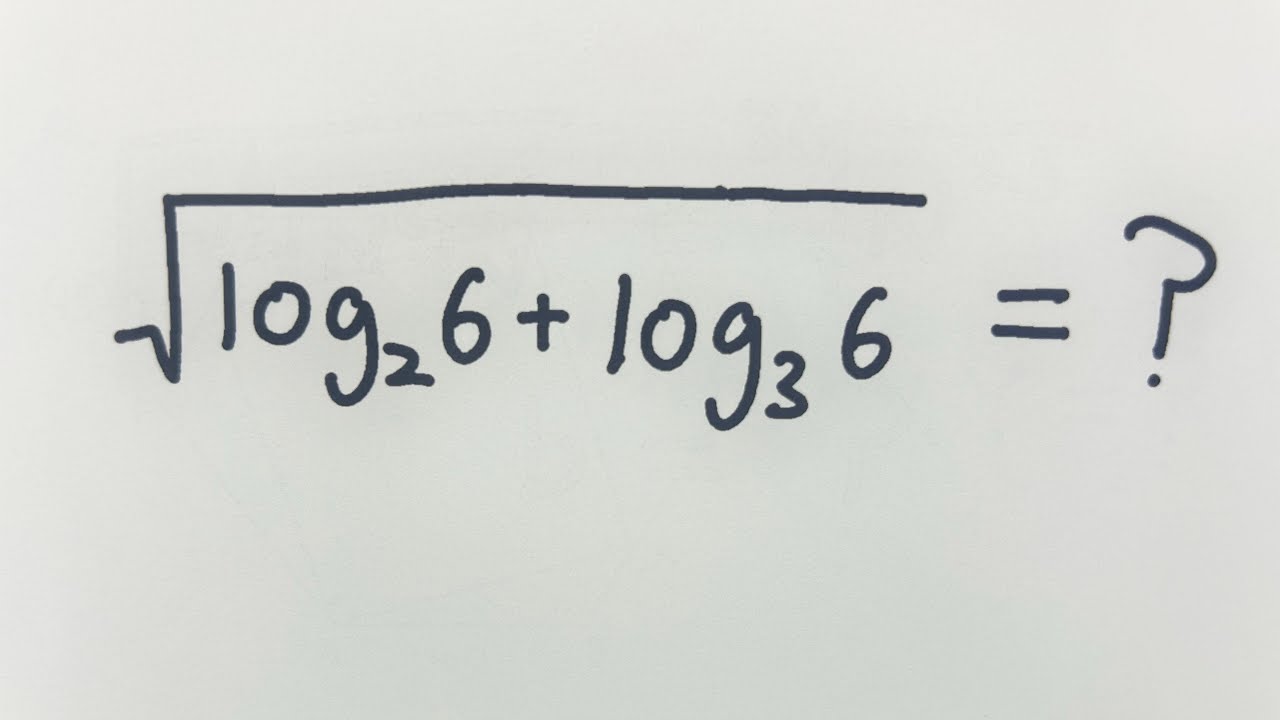 √(log₂6 + log₃6) = ?